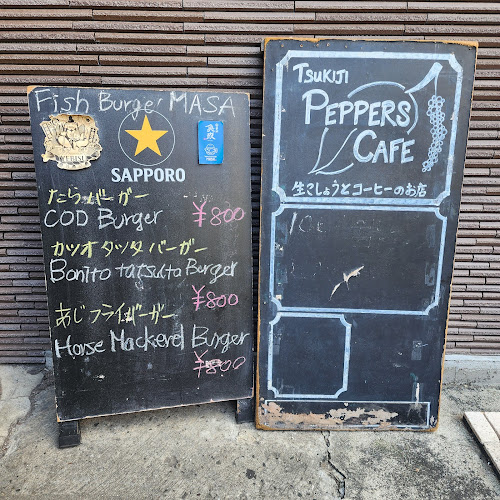 Fish Burger MASA
SAPPORO
たらバーガー
COD Burger ¥800
カツオタツタバーガー
Bonito tatsuta Burger
¥800
あじフライバーガー
Horse Mackerel Burger
¥800
TSUKIJI
PEPPERS
CAFE
生こしょうとコーヒーのお店